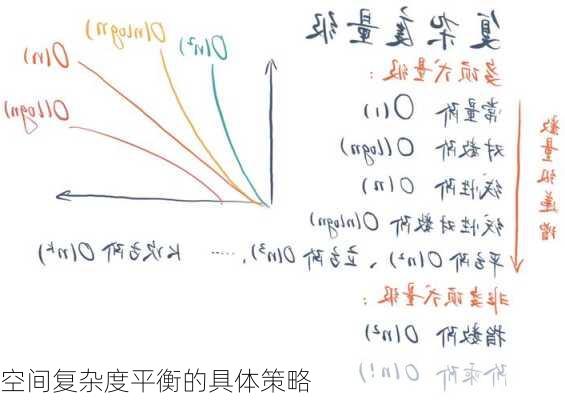 复杂度量级
多项式量级：
常量阶 O(1)
对数阶 O(logn)
线性阶 O(n)
线性对数阶 O(nlogn)
平方阶 O(n²)、立方阶 O(n³), …… k次方阶 O(nᵏ)
非多项式量级：
指数阶 O(n²)
阶乘阶 O(n!)
数量级递增
O(n²)
O(nlogn)
O(n)
O(logn)
空间复杂度平衡的具体策略